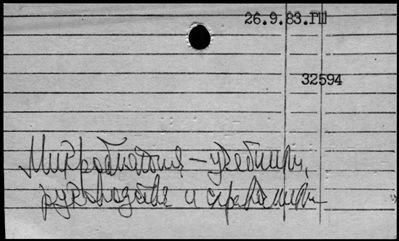 26.9.83.ПШ
32594
Микробиология – учебники,
руководства и справочники